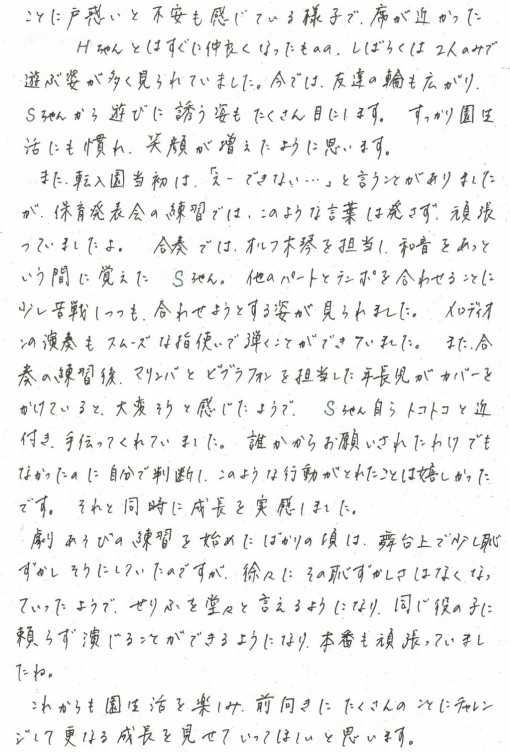 ことに戸惑いと不安も感じている様子で、席が近かった
Hちゃんとはすぐに仲良くなったものの、しばらくは2人のみで
遊ぶ姿が多く見られていました。今では、友達の輪も広がり、
Sちゃんから遊びに誘う姿もたくさん目にします。すっかり園生
活にも慣れ、笑顔が増えたように思います。
また、転入園当初は、「えーできない…」と言うことがありました
が、保育発表会の練習では、このような言葉は発さず、頑張
っていましたよ。合奏では、オルフ木琴を担当し、和音をあっと
いう間に覚えたSちゃん。他のパートとテンポを合わせることに
少し苦戦しつつも、合わせようとする姿が見られました。メロディオ
ンの演奏もスムーズな指使いで弾くことができていました。また、合
奏の練習後、マリンバとビブラフォンを担当した年長児がカバーを
かけていると、大変そうと感じたようで、Sちゃん自らトコトコと近
付き、手伝ってくれていました。誰かからお願いされたわけでも
なかったのに自分で判断し、このような行動がとれたことは嬉しかった
です。それと同時に成長を実感しました。
劇あそびの練習を始めたばかりの頃は、舞台上で少し恥
ずかしそうにしていたのですが、徐々にその恥ずかしさはなくなっ
ていったようで、せりふを堂々と言えるようになり、同じ役の子に
頼らず演じることができるようになり、本番も頑張っていまし
たね。
これからも園生活を楽しみ、前向きにたくさんのことにチャレン
ジして更なる成長を見せていってほしいと思います。